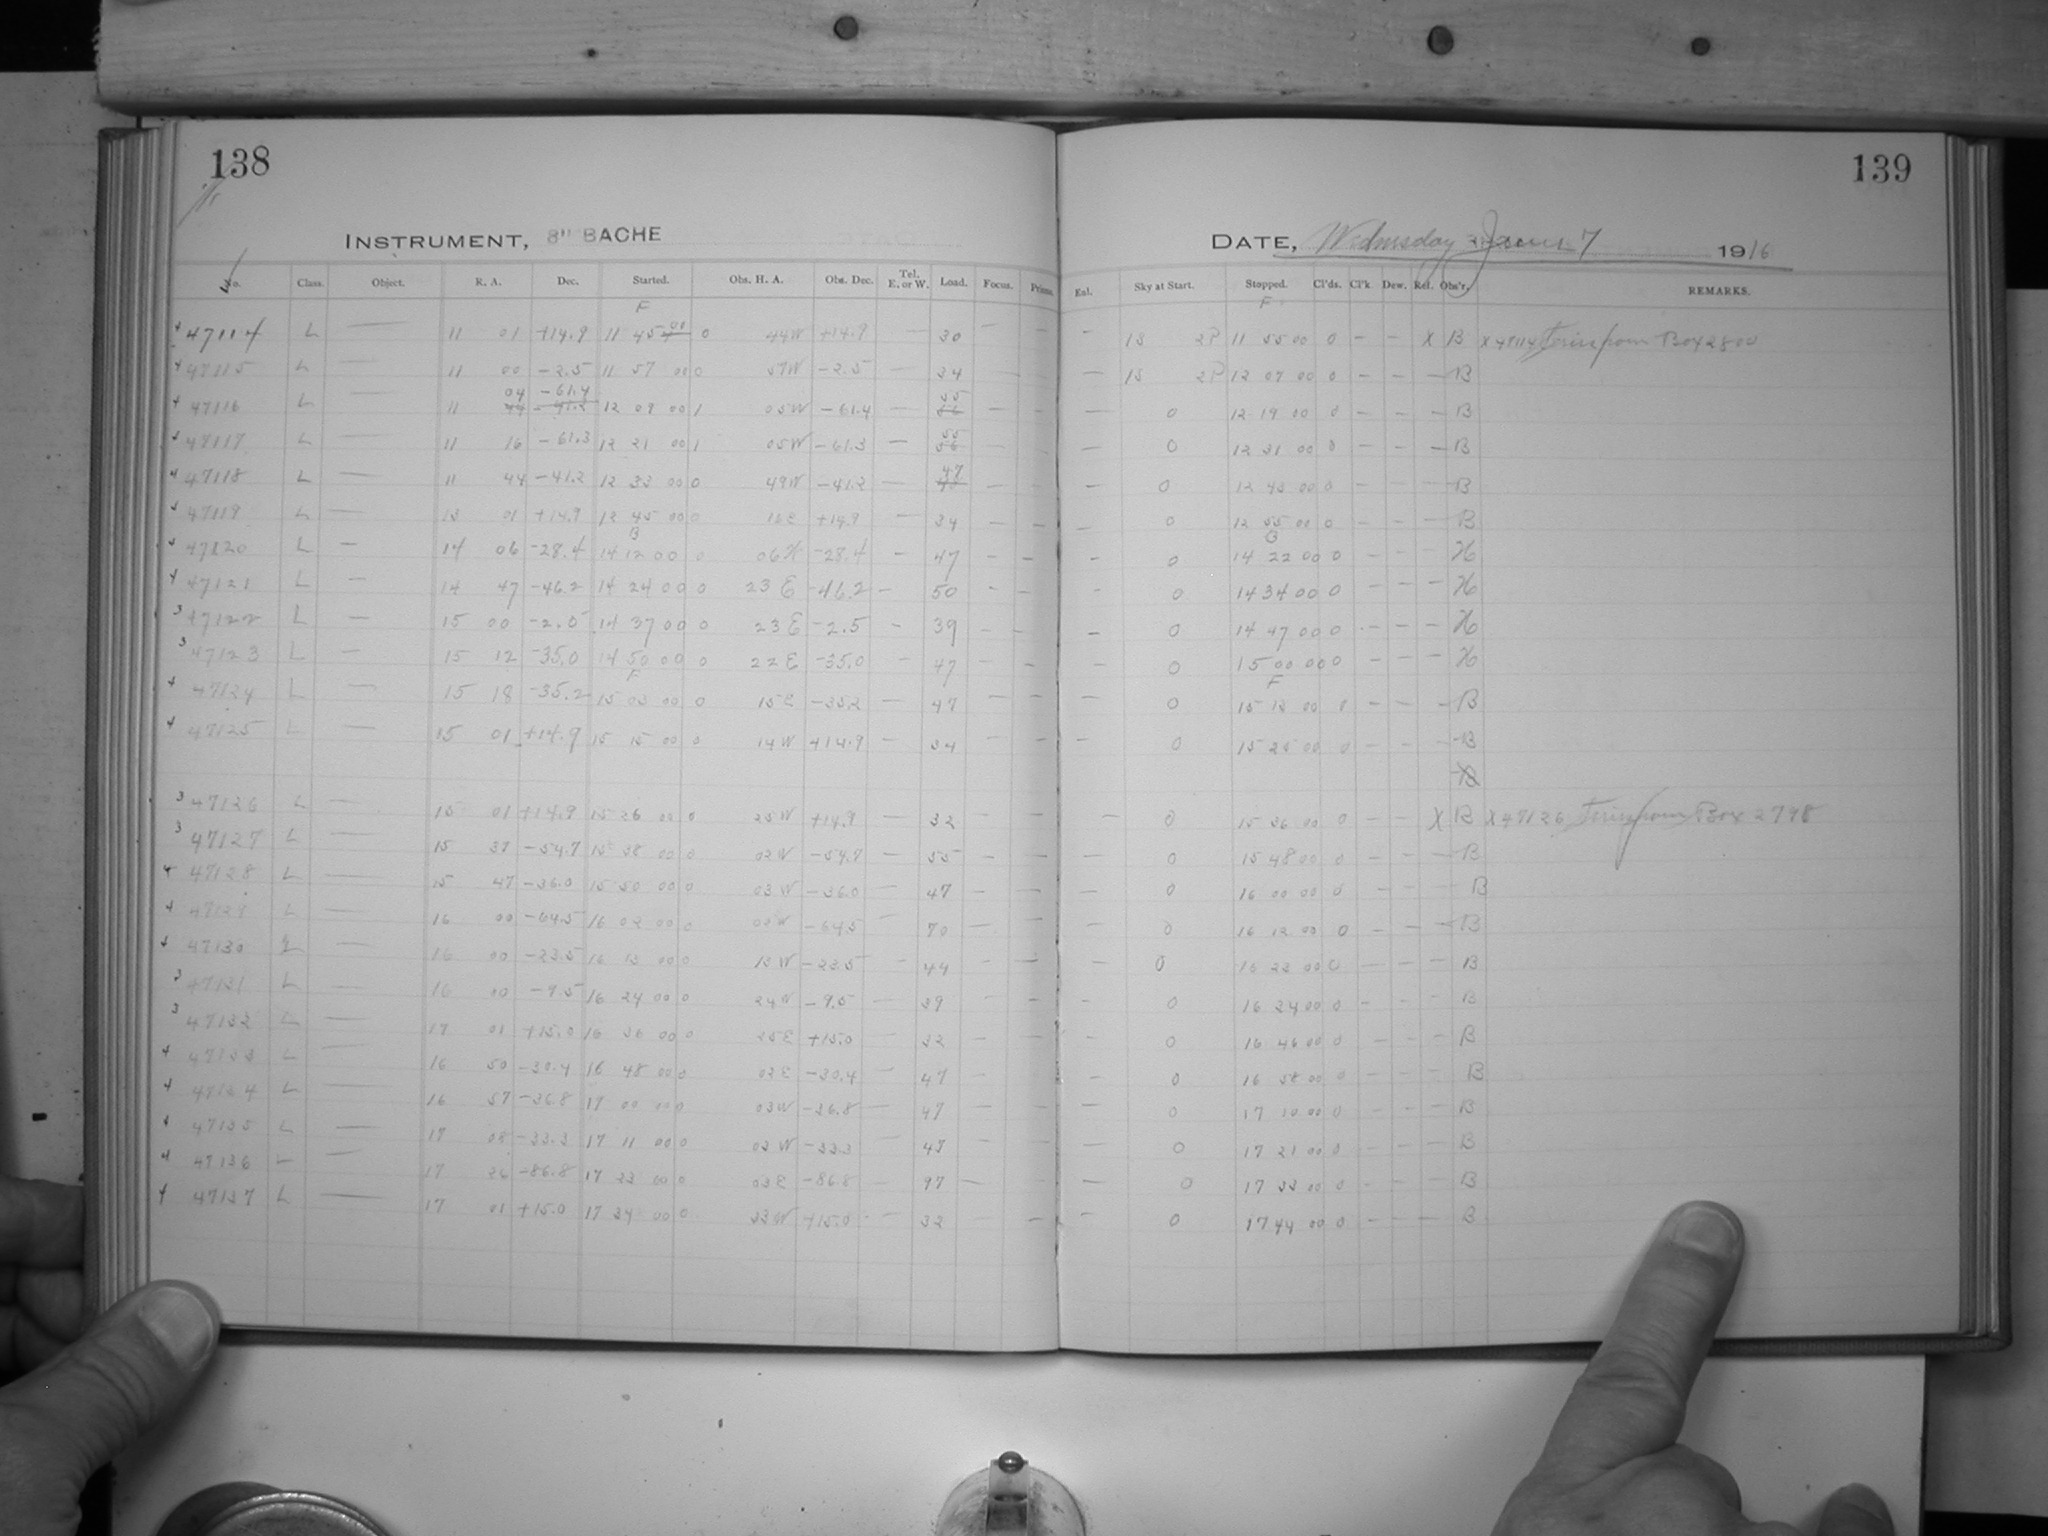 138
139
INSTRUMENT, 8" BACHE
DATE, Wednesday June 7 1916
No. Class. Object. R. A. Dec. Started. Obs. H. A. Obs. Dec. Tel. E. or W. Load. Focus. Prisms. Enl. Sky at Start. Stopped. Cl'ds. Cl'k Dew. Ref. Obs'r. REMARKS.
F F
4 47114 L — 11 01 +14.9 11 45 00 0 44W +14.9 — 30 — — — 1S 2P 11 55 00 0 — — X B X 47114 from Box 2800
4 47115 L — 11 00 -2.5 11 57 00 0 57W -2.5 — 34 — — — 1S 2P 12 07 00 0 — — — B
4 47116 L — 11 04 -61.4 12 09 00 1 05W -61.4 — 55 — — — 0 12 19 00 0 — — — B
4 47117 L — 11 16 -61.3 12 21 00 1 05W -61.3 — 55 — — — 0 12 31 00 0 — — — B
4 47118 L — 11 44 -41.2 12 33 00 0 49W -41.2 — 47 — — — 0 12 43 00 0 — — — B
4 47119 L — 13 01 +14.9 12 45 00 0 16E +14.9 — 34 — — — 0 12 55 00 0 — — — B
B B
4 47120 L — 14 06 -28.4 14 12 00 0 06W -28.4 — 47 — — — 0 14 22 00 0 — — — H
4 47121 L — 14 47 -46.2 14 24 00 0 23 E -46.2 — 50 — — — 0 14 34 00 0 — — — H
3 47122 L — 15 00 -2.5 14 37 00 0 23 E -2.5 — 39 — — — 0 14 47 00 0 — — — H
3 47123 L — 15 12 -35.0 14 50 00 0 22 E -35.0 — 47 — — — 0 15 00 00 0 — — — H
F F
4 47124 L — 15 18 -35.2 15 03 00 0 15E -35.2 — 47 — — — 0 15 13 00 0 — — — B
4 47125 L — 15 01 +14.9 15 15 00 0 14W +14.9 — 34 — — — 0 15 25 00 0 — — — B
3 47126 L — 15 01 +14.9 15 26 00 0 25W +14.9 — 32 — — — 0 15 36 00 0 — — X B X 47126 from Box 2798
3 47127 L — 15 37 -54.7 15 38 00 0 02W -54.7 — 55 — — — 0 15 48 00 0 — — — B
4 47128 L — 15 47 -36.0 15 50 00 0 03W -36.0 — 47 — — — 0 16 00 00 0 — — — B
4 47129 L — 16 00 -64.5 16 02 00 0 00W -64.5 — 70 — — — 0 16 12 00 0 — — — B
4 47130 L — 16 00 -23.5 16 13 00 0 13W -23.5 — 44 — — — 0 16 23 00 0 — — — B
3 47131 L — 16 00 -9.5 16 24 00 0 24W -9.5 — 39 — — — 0 16 34 00 0 — — — B
3 47132 L — 17 01 +15.0 16 36 00 0 25E +15.0 — 32 — — — 0 16 46 00 0 — — — B
4 47133 L — 16 50 -30.4 16 48 00 0 02E -30.4 — 47 — — — 0 16 58 00 0 — — — B
4 47134 L — 16 57 -36.8 17 00 00 0 03W -36.8 — 47 — — — 0 17 10 00 0 — — — B
4 47135 L — 17 08 -33.3 17 11 00 0 03W -33.3 — 47 — — — 0 17 21 00 0 — — — B
4 47136 L — 17 26 -86.8 17 23 00 0 03E -86.8 — 97 — — — 0 17 33 00 0 — — — B
4 47137 L — 17 01 +15.0 17 34 00 0 33W +15.0 — 32 — — — 0 17 44 00 0 — — — B